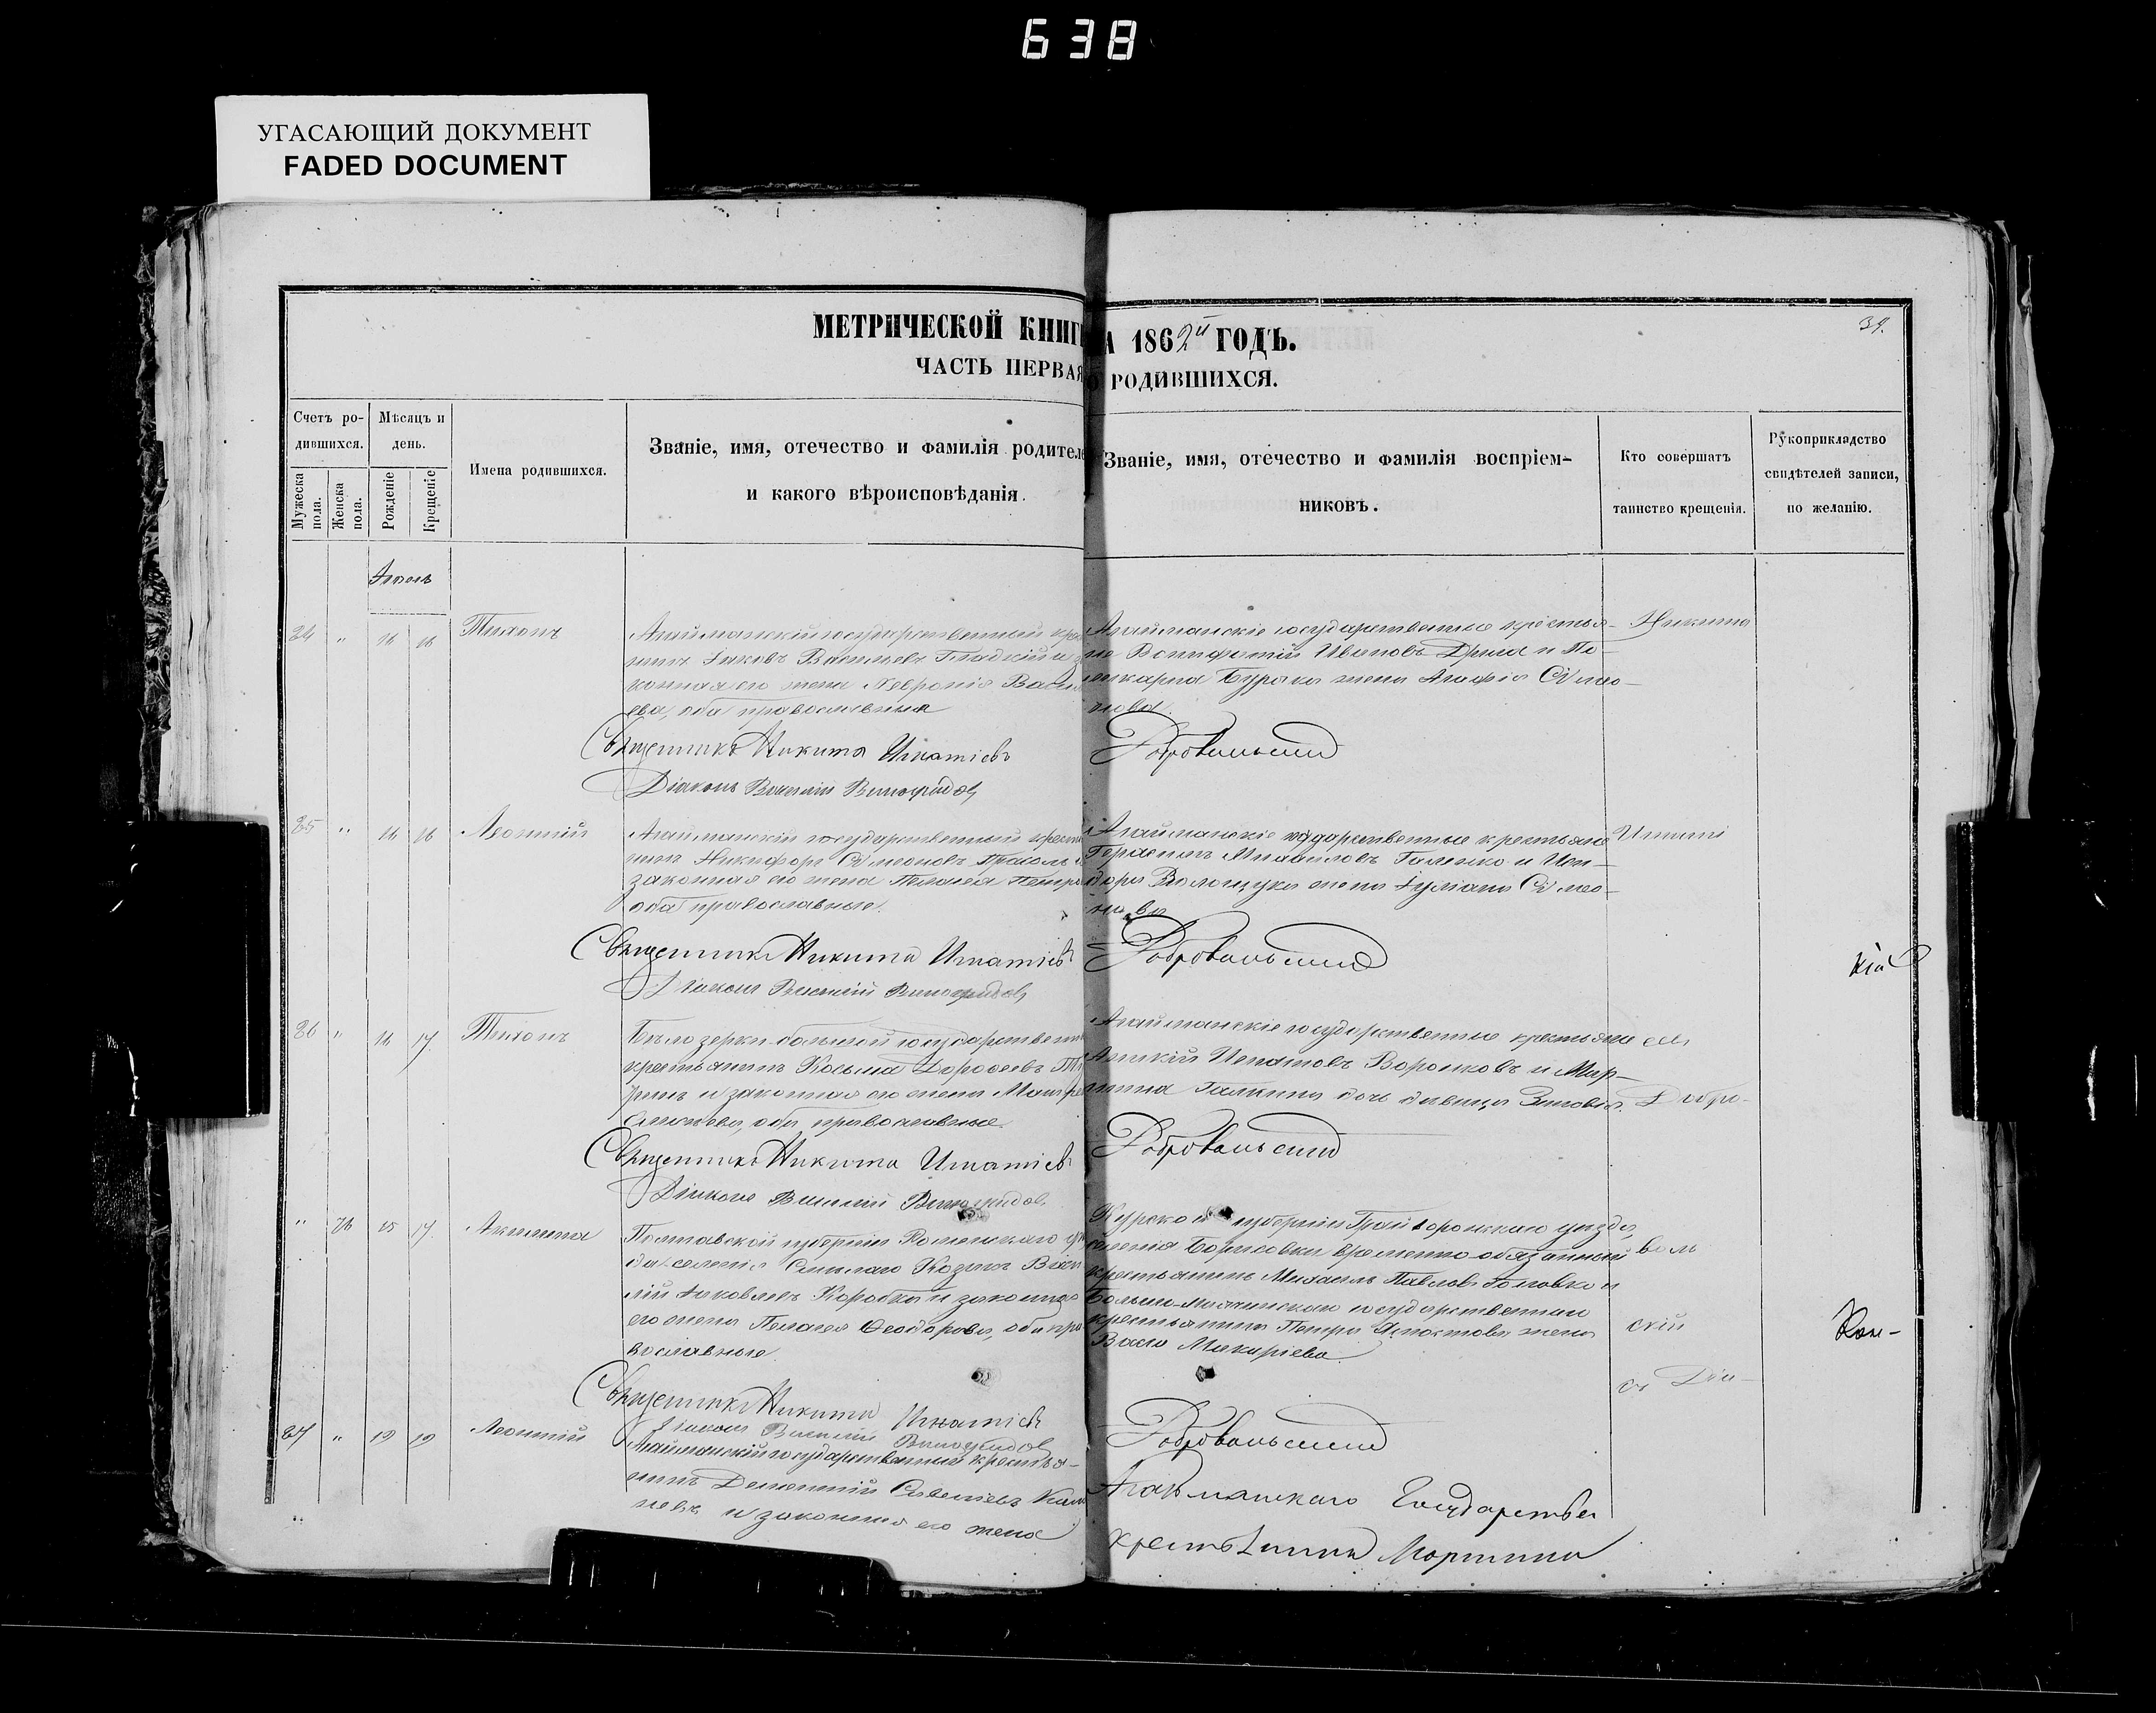 638
УГАСАЮЩИЙ ДОКУМЕНТ
FADED DOCUMENT
МЕТРИЧЕСКОЙ КНИГ
А 1862й ГОДЪ.
39.
ЧАСТЬ ПЕРВАЯ
О РОДИВШИХСЯ.
Счетъ ро-
дившихся.
Мужеска
пола.
Женска
пола.
Мѣсяцъ и
день.
Рожденіе
Крещеніе
Имена родившихся.
Званіе, имя, отечество и фамилія родителе
и какого вѣроисповѣданія.
Званіе, имя, отечество и фамилія воспріем-
никовъ.
Кто совершатъ
таинство крещенія.
Рукоприкладство
свидѣтелей записи,
по желанію.
24 " 16 16 Тихонъ
Агайманскій государственный кре
нинъ Іаковъ Васильевъ Гладкій и з
конная его жена Февронія Васил
ева, оба православные
Священникъ Никита Игнатіевъ
Діаконъ Василій Виноградовъ
Агайманскіе государственные крестья-
не Вонифатій Ивановъ и По-
Бурака жена Агафія Сѵмео-
нова.
Добровольскій
Никита
25 " 16 16 Леонтій
Агайманскій государственный крест
нинъ Никифоръ Сѵмеоновъ и
законная его жена Пелагея Петро
оба православные.
Священникъ Никита Игнатіевъ
Діаконъ Василій Виноградовъ
Агайманскіе государственные крестьяне
Герасимъ Михайловъ Галенко и Иси-
дора Волощука жена Іуліана Сѵмео-
нова
Добровольскій
Игнаті
кій
26 " 16 17. Тихонъ
Бѣлозерки большой государственн
крестьянинъ Косьма Дороѳеевъ
и законная его жена
оба православные.
Священникъ Никита Игнатіевъ
Діаконъ Василій Виноградовъ
Агайманскіе государственные крестьяне
Аникій Ипатовъ Воронковъ и Мар-
тина Галкина дочь дѣвица Зиновія.
Добровольскій
евъ
Добро-
" 26 15 17. Акилина
Полтавской губерніи Роменскаго уѣз
да селенія Козакъ
лій Іаковлевъ Коробка и законная
его жена Пелагея Ѳеодорова, оба пра
вославные.
Священникъ Никита Игнатіевъ
Діаконъ Василій Виноградовъ
Курской губерніи Грайворонскаго уѣзда,
селенія Борисовки временно-обязанный
крестьянинъ Михаилъ Павловъ Головко и
государственнаго
крестьянина Петра жена
Васса Макаріева.
Добровольскій
воль
скій
съ Діа-
Кон-
27 " 19 19 Леонтій
Агайманскій государственный крестья-
нинъ Дементій Савельевъ
и законная его жена
Агайманскаго Государствен
крестьянина Мартина